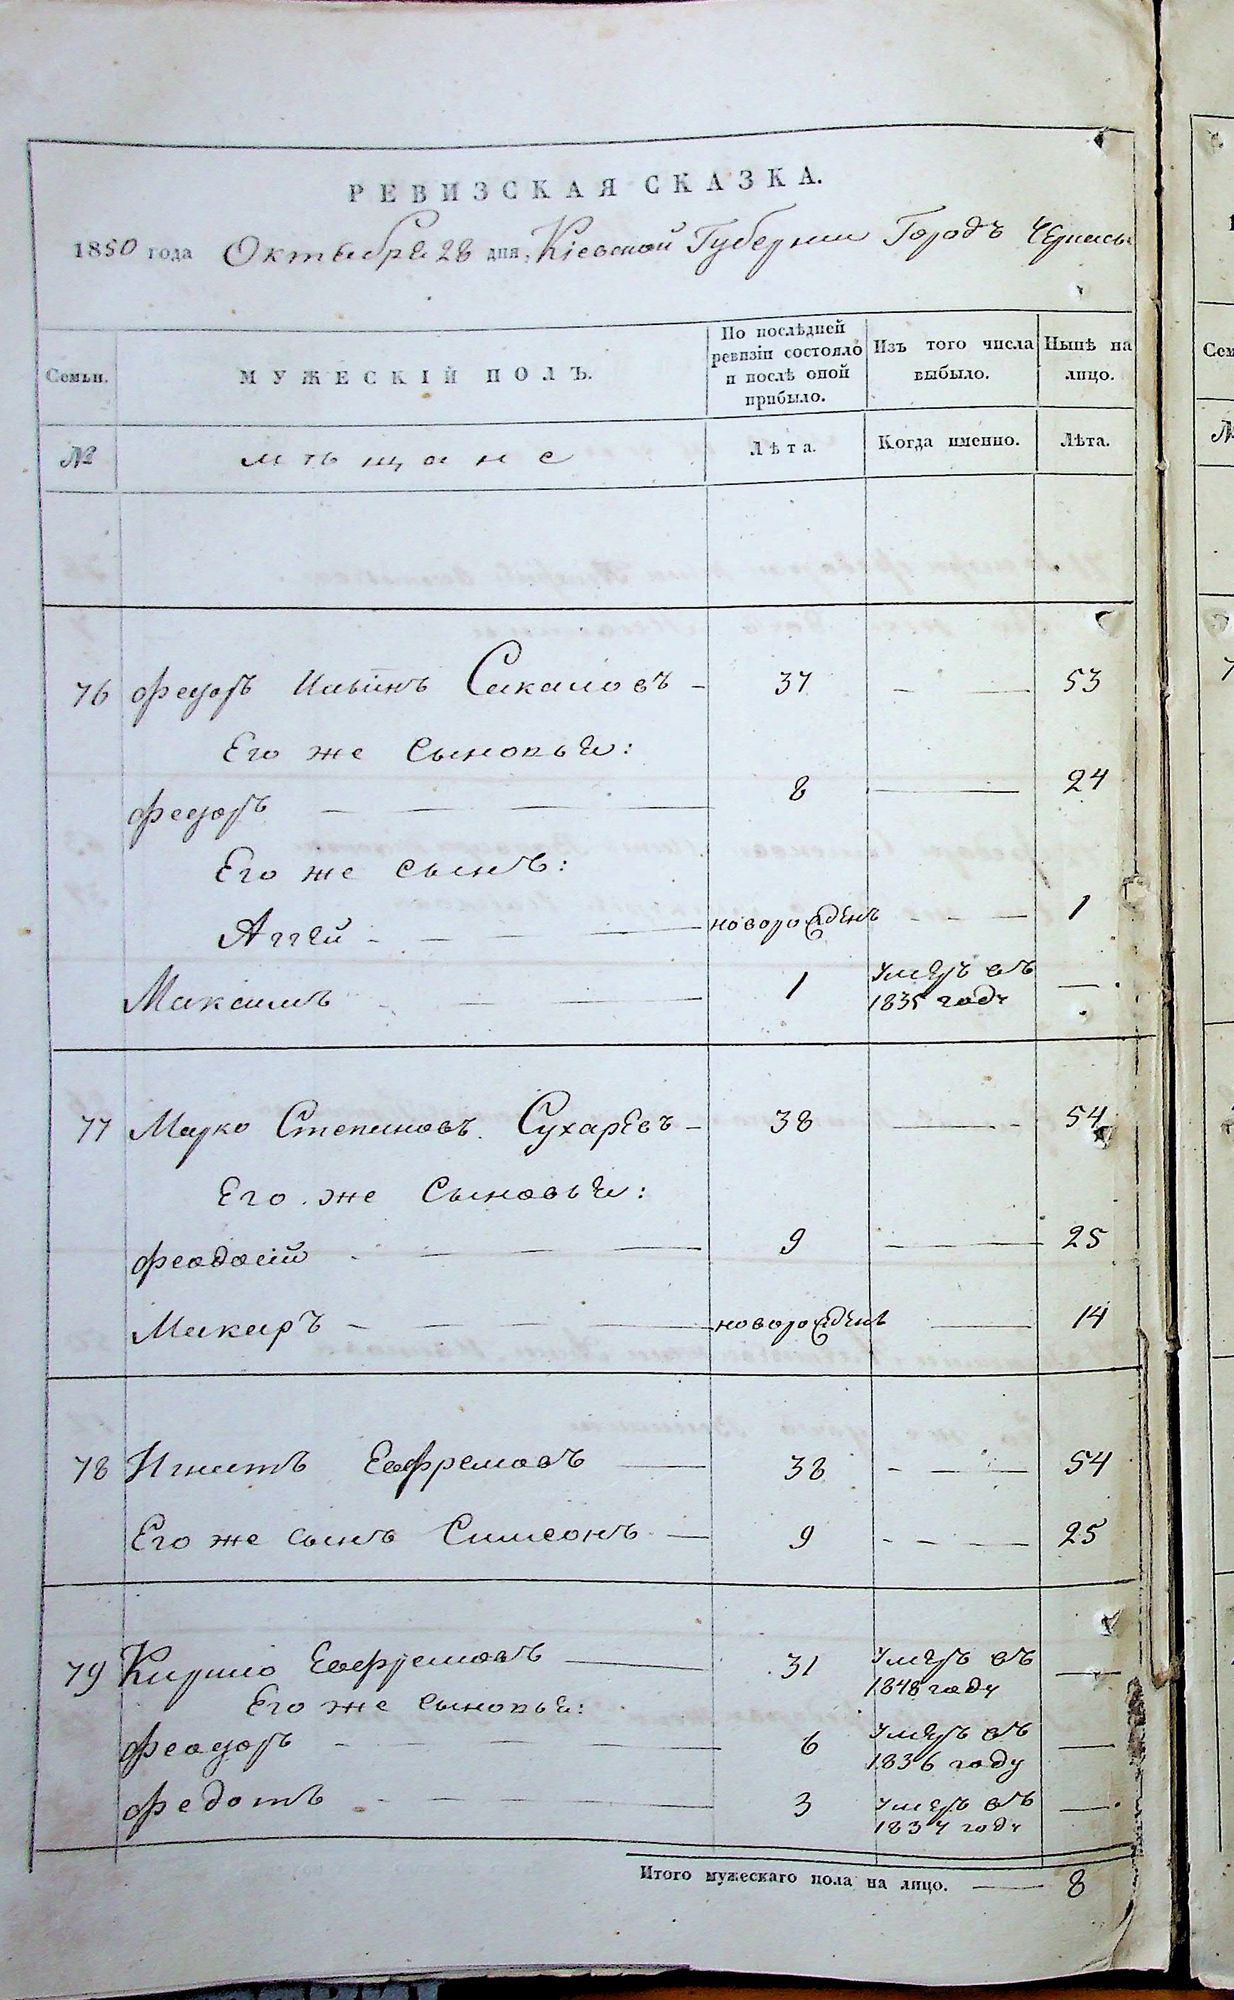 РЕВИЗСКАЯ СКАЗКА.
1850 года Октября 28 дня, Кіевской Губерніи Городъ Черкасы
Семьи. МУЖЕСКІЙ ПОЛЪ. По послѣдней ревизіи состояло и послѣ оной прибыло. Изъ того числа выбыло. Нынѣ на лицо.
№ мѣщане Лѣта. Когда именно. Лѣта.
76 Федоръ Ильинъ Сакаловъ - 37 - — 53
Его же Сыновья:
Федоръ — 8 — 24
Его же сынъ:
Аггей - — новорожденъ - - — 1
Максимъ — 1 Умеръ въ 1835 году — .
77 Марко Степановъ Сухаревъ - 38 — 54
Его же Сыновья:
Феодосій - — 9 — 25
Макаръ - — новорожденъ — 14
78 Игнатъ Евфремовъ — 38 - — 54
Его же сынъ Симеонъ — 9 - - — 25
79 Кирило Евфремовъ — 31 Умеръ въ 1848 году —
Его же сыновья:
Феодоръ - — 6 Умеръ въ 1836 году —
Федотъ - — 3 Умеръ въ 1837 году — .
Итого мужескаго пола на лицо. — 8